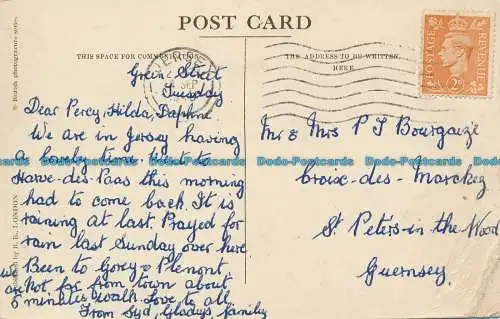 POST CARD
THIS SPACE FOR COMMUNICATION
THE ADDRESS TO BE WRITTEN
HERE
POSTAGE
REVENUE
2D
SEP
British photogravure series.
LONDON
Green Street
Tuesday
Dear Percy, Hilda, Daphne
We are in Jersey having
a lovely time. Got to
Havre-des-Paas this morning
had to come back. It is
raining at last. Prayed for
rain last Sunday over here
Been to Gorey & Plemont
we are not far from town about
5 minutes walk. Love to all
From Syd, Gladys, family
Mr & Mrs P J Bourgaize
Croix-des-
St Peters in the Wood
Guernsey.
Dodo-Postcards Dodo-Postcards Dodo-Postcards Dodo-Postcards